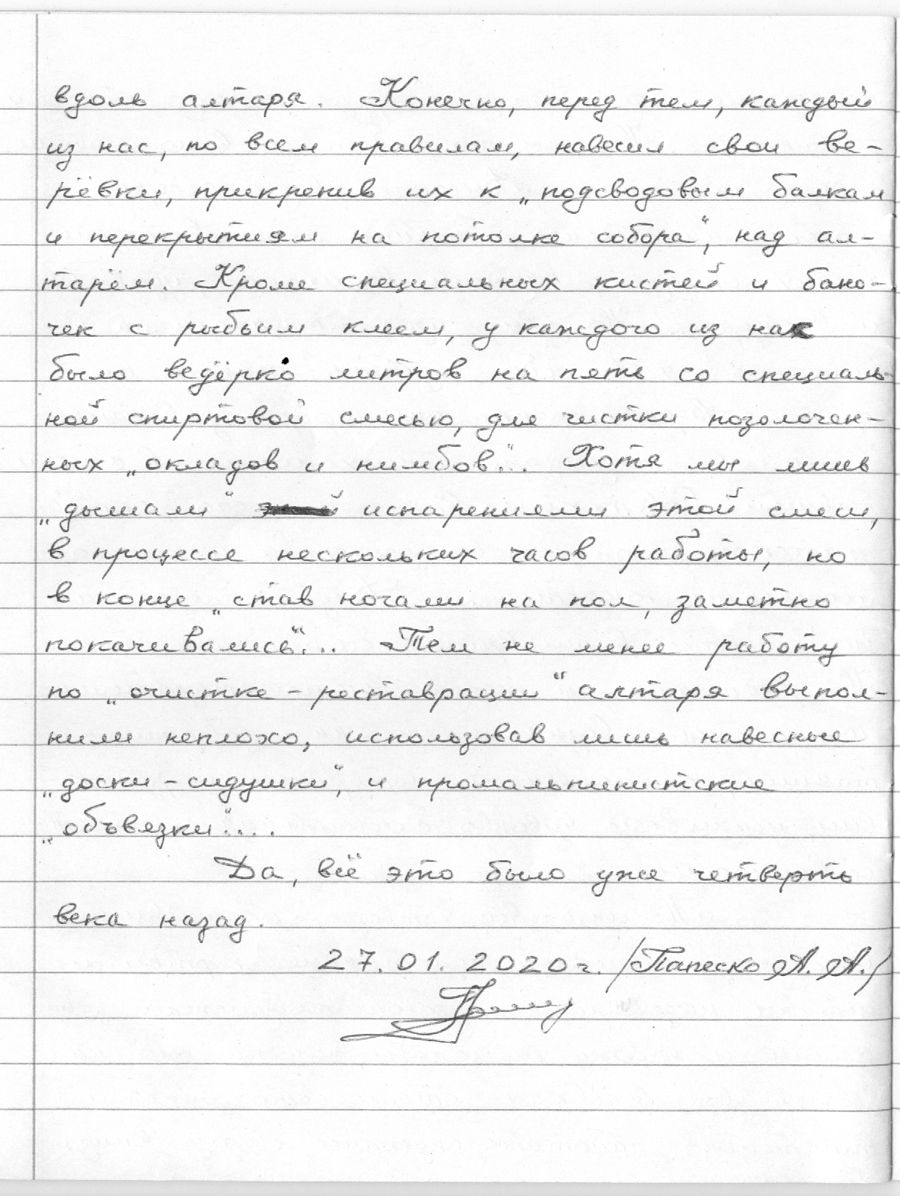 вдоль алтаря. Конечно, перед тем, каждый
из нас, по всем правилам, навесил свои ве-
рёвки, прикрепив их к „подсводовым балкам
и перекрытиям на потолке собора“, над ал-
тарём. Кроме специальных кистей и бано-
чек с рыбьим клеем, у каждого из нас
было ведёрко литров на пять со специаль-
ной спиртовой смесью, для чистки позолочен-
ных „окладов и нимбов“... Хотя мы лишь
„дышали“ испарениями этой смеси,
в процессе нескольких часов работы, но
в конце „став ногами на пол, заметно
покачивались“... Тем не менее работу
по „очистке-реставрации“ алтаря выпол-
нили неплохо, использовав лишь навесные
„доски-сидушки“, и промальпинистские
„объвязки“....
Да, всё это было уже четверть
века назад.
27.01.2020г. /Папеско А.А./